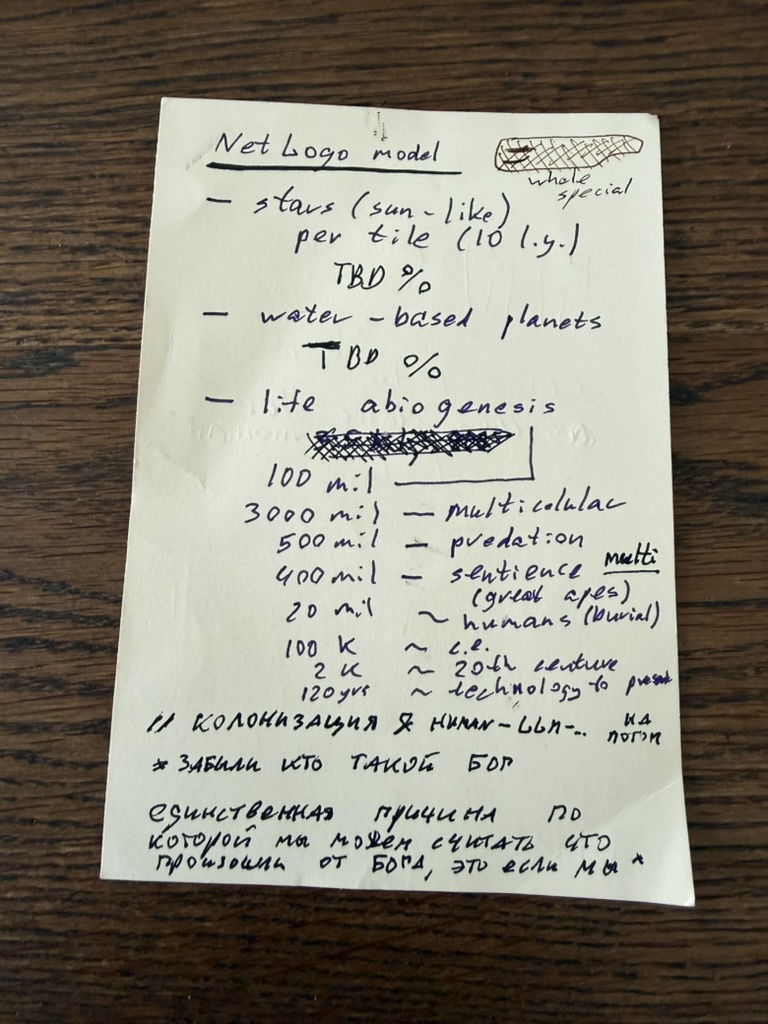 NetLogo model
whole
special
– stars (sun-like)
per tile (10 l.y.)
TBD %
– water-based planets
TBD %
– life abiogenesis
100 mil
3000 mil – multicelular
500 mil – predation
400 mil – sentience multi
(great apes)
20 mil ~ humans (burial)
100 K ~ c.e.
2 K ~ 20th centure
120 yrs ~ technology to present
// КОЛОНИЗАЦИЯ & HUMAN-LLM-.. НА
ПОТОМ
* ЗАБЫЛИ КТО ТАКОЙ БОГ
единственная причина по
которой мы можем считать что
произошли от БОГА, это если мы *